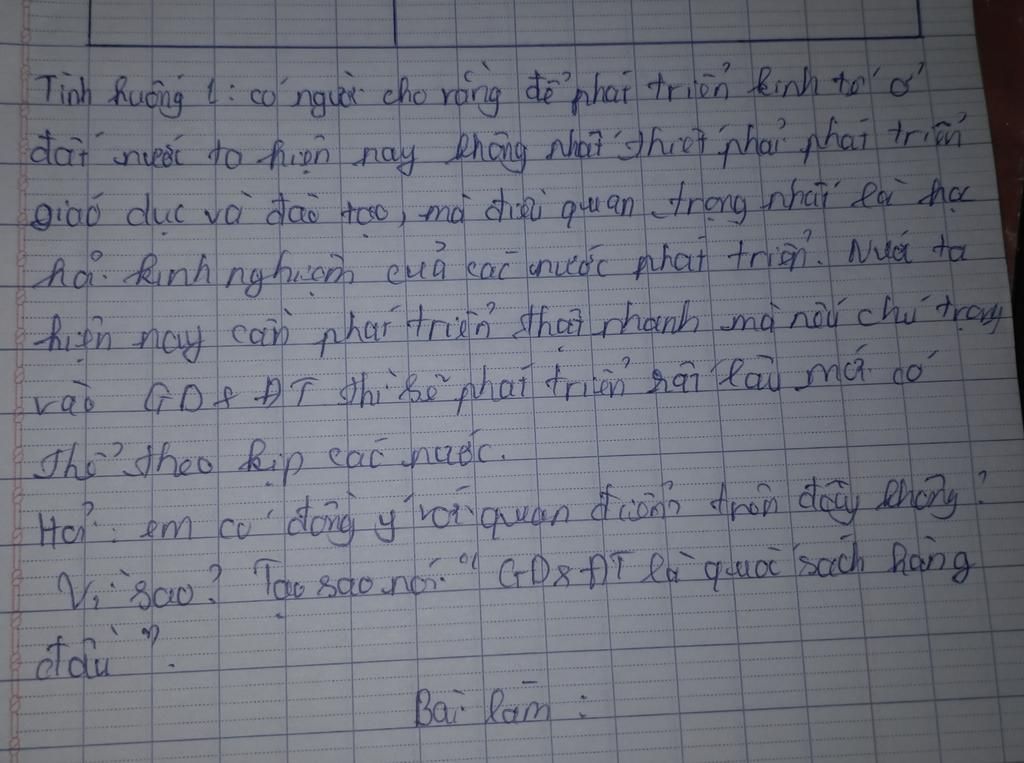 Tình huống 1: có người cho rằng để phát triển kinh tế ở
đất nước ta hiện nay không nhất thiết phải phát triển
giáo dục và đào tạo, mà điều quan trọng nhất là học
hỏi kinh nghiệm của các nước phát triển. Nước ta
hiện nay cần phát triển thật nhanh mà nếu chú trọng
vào GD & ĐT thì sẽ phát triển rất lâu mới có
thể theo kịp các nước.
Hỏi: em có đồng ý với quan điểm trên đây không?
Vì sao? Tại sao nói "GD & ĐT là quốc sách hàng
đầu".
Bài làm: